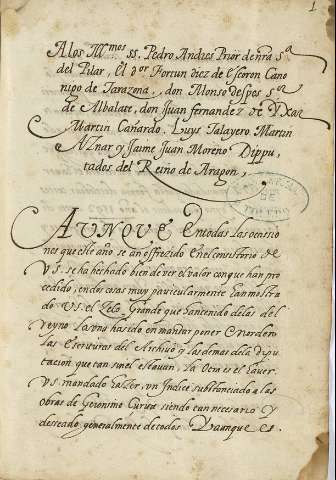 1
A los Ill.mos SS. Pedro Andres Prior de nra S.ª
del Pilar, El Dor Fortun diez de Escoron Cano
nigo de Tarazona, don Alonso despes s.or
de Albalate, don Juan fernandez de Yxar
Martin Cañardo, Luys Talayero Martin
Aznar y Jayme Juan Moreno Dippu,
tados del Reino de Aragon,
AUNQUE En todas las ocassio
nes que este año se an offrezido En el consistorio de
V.S. se ha hechado bien de ver el valor con que han pro
cedido, en dos cosas muy particularmente han mostra
do V.S. el Zelo Grande que han tenido de las del
reyno. La una ha sido en mandar poner En orden
las Escrituras del Archivo y las demas de la Dipu
tacion que tan mal estauan, la Otra es el hauer
V.S. mandado hazer, un Indice substanciado a las
obras de Geronimo Curita siendo tan necesario y
desseado generalmente de todos. Y aunque es.